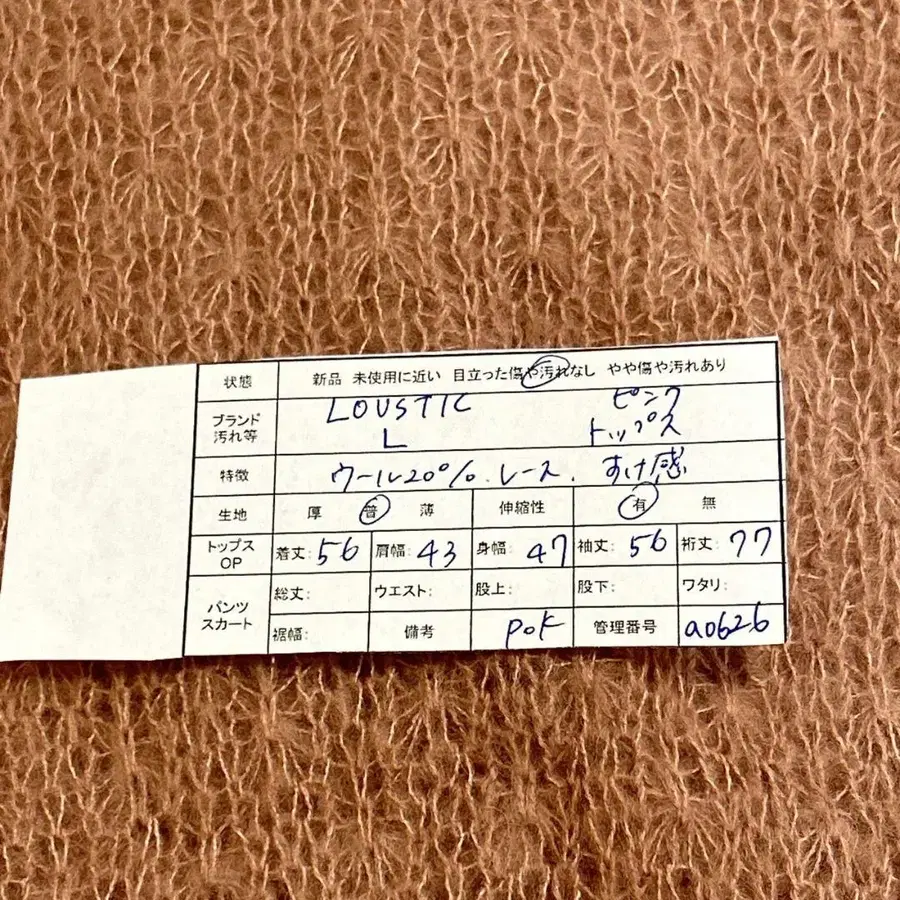 状態 新品 未使用に近い 目立った傷や汚れなし やや傷や汚れあり
ブランド 汚れ等 LOUSTIC ピンク
L トップス
特徴 ウール20%.レース.すけ感
生地 厚 普 薄 伸縮性 有 無
トップス OP 着丈:56 肩幅:43 身幅:47 袖丈:56 裄丈:77
パンツ スカート 総丈: ウエスト: 股上: 股下: ワタリ:
裾幅: 備考 POK 管理番号 a0626